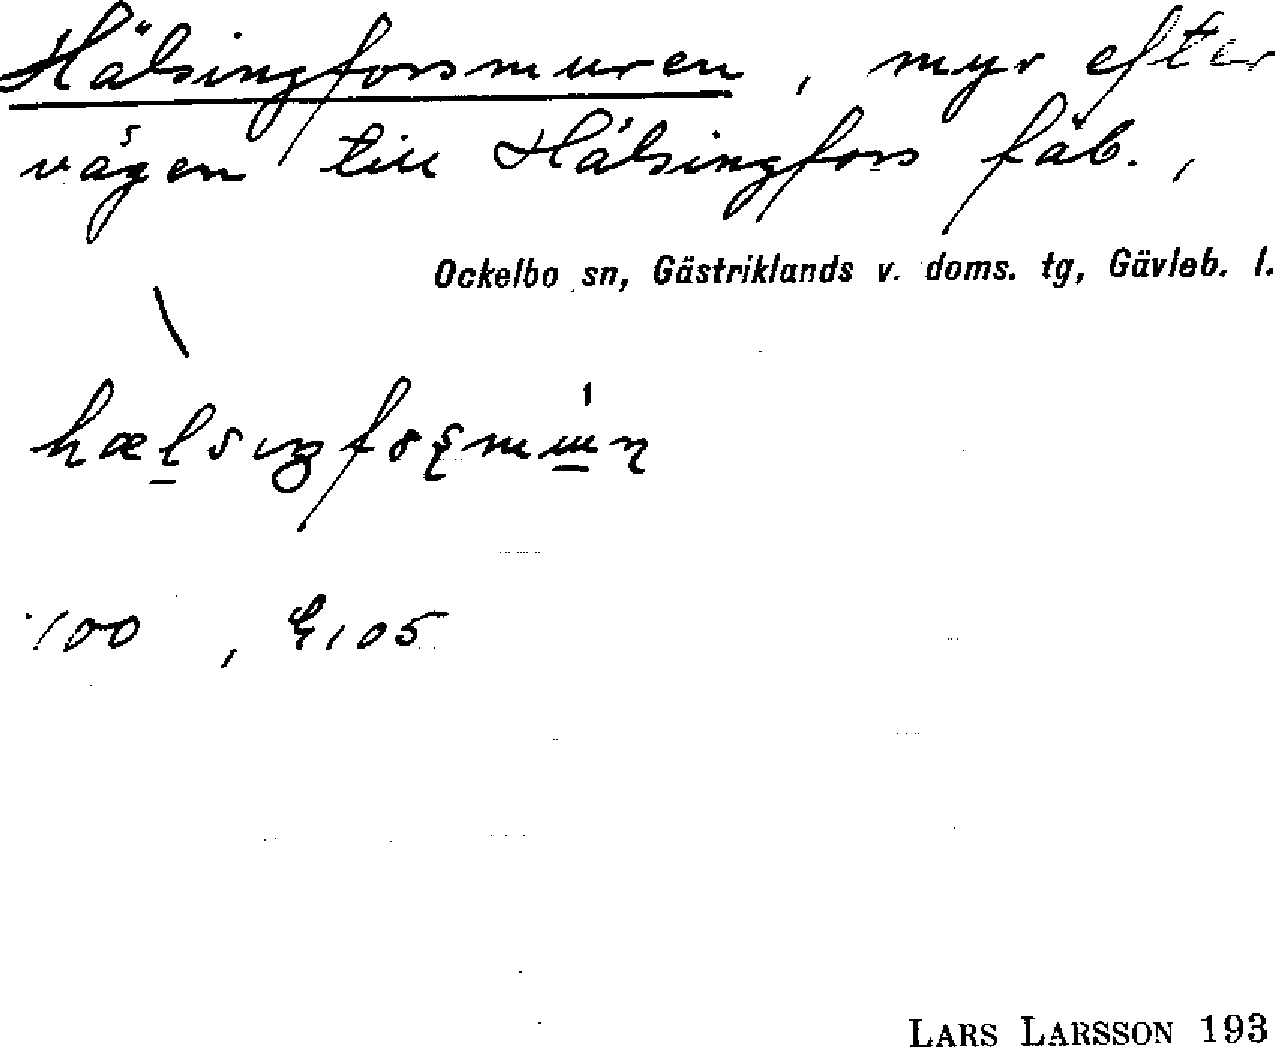 Hälsingforsmuren, myr efter
vägen till Hälsingfors fäb.,
Ockelbo sn, Gästriklands v. doms. tg, Gävleb. l.
100, 
LARS LARSSON 193